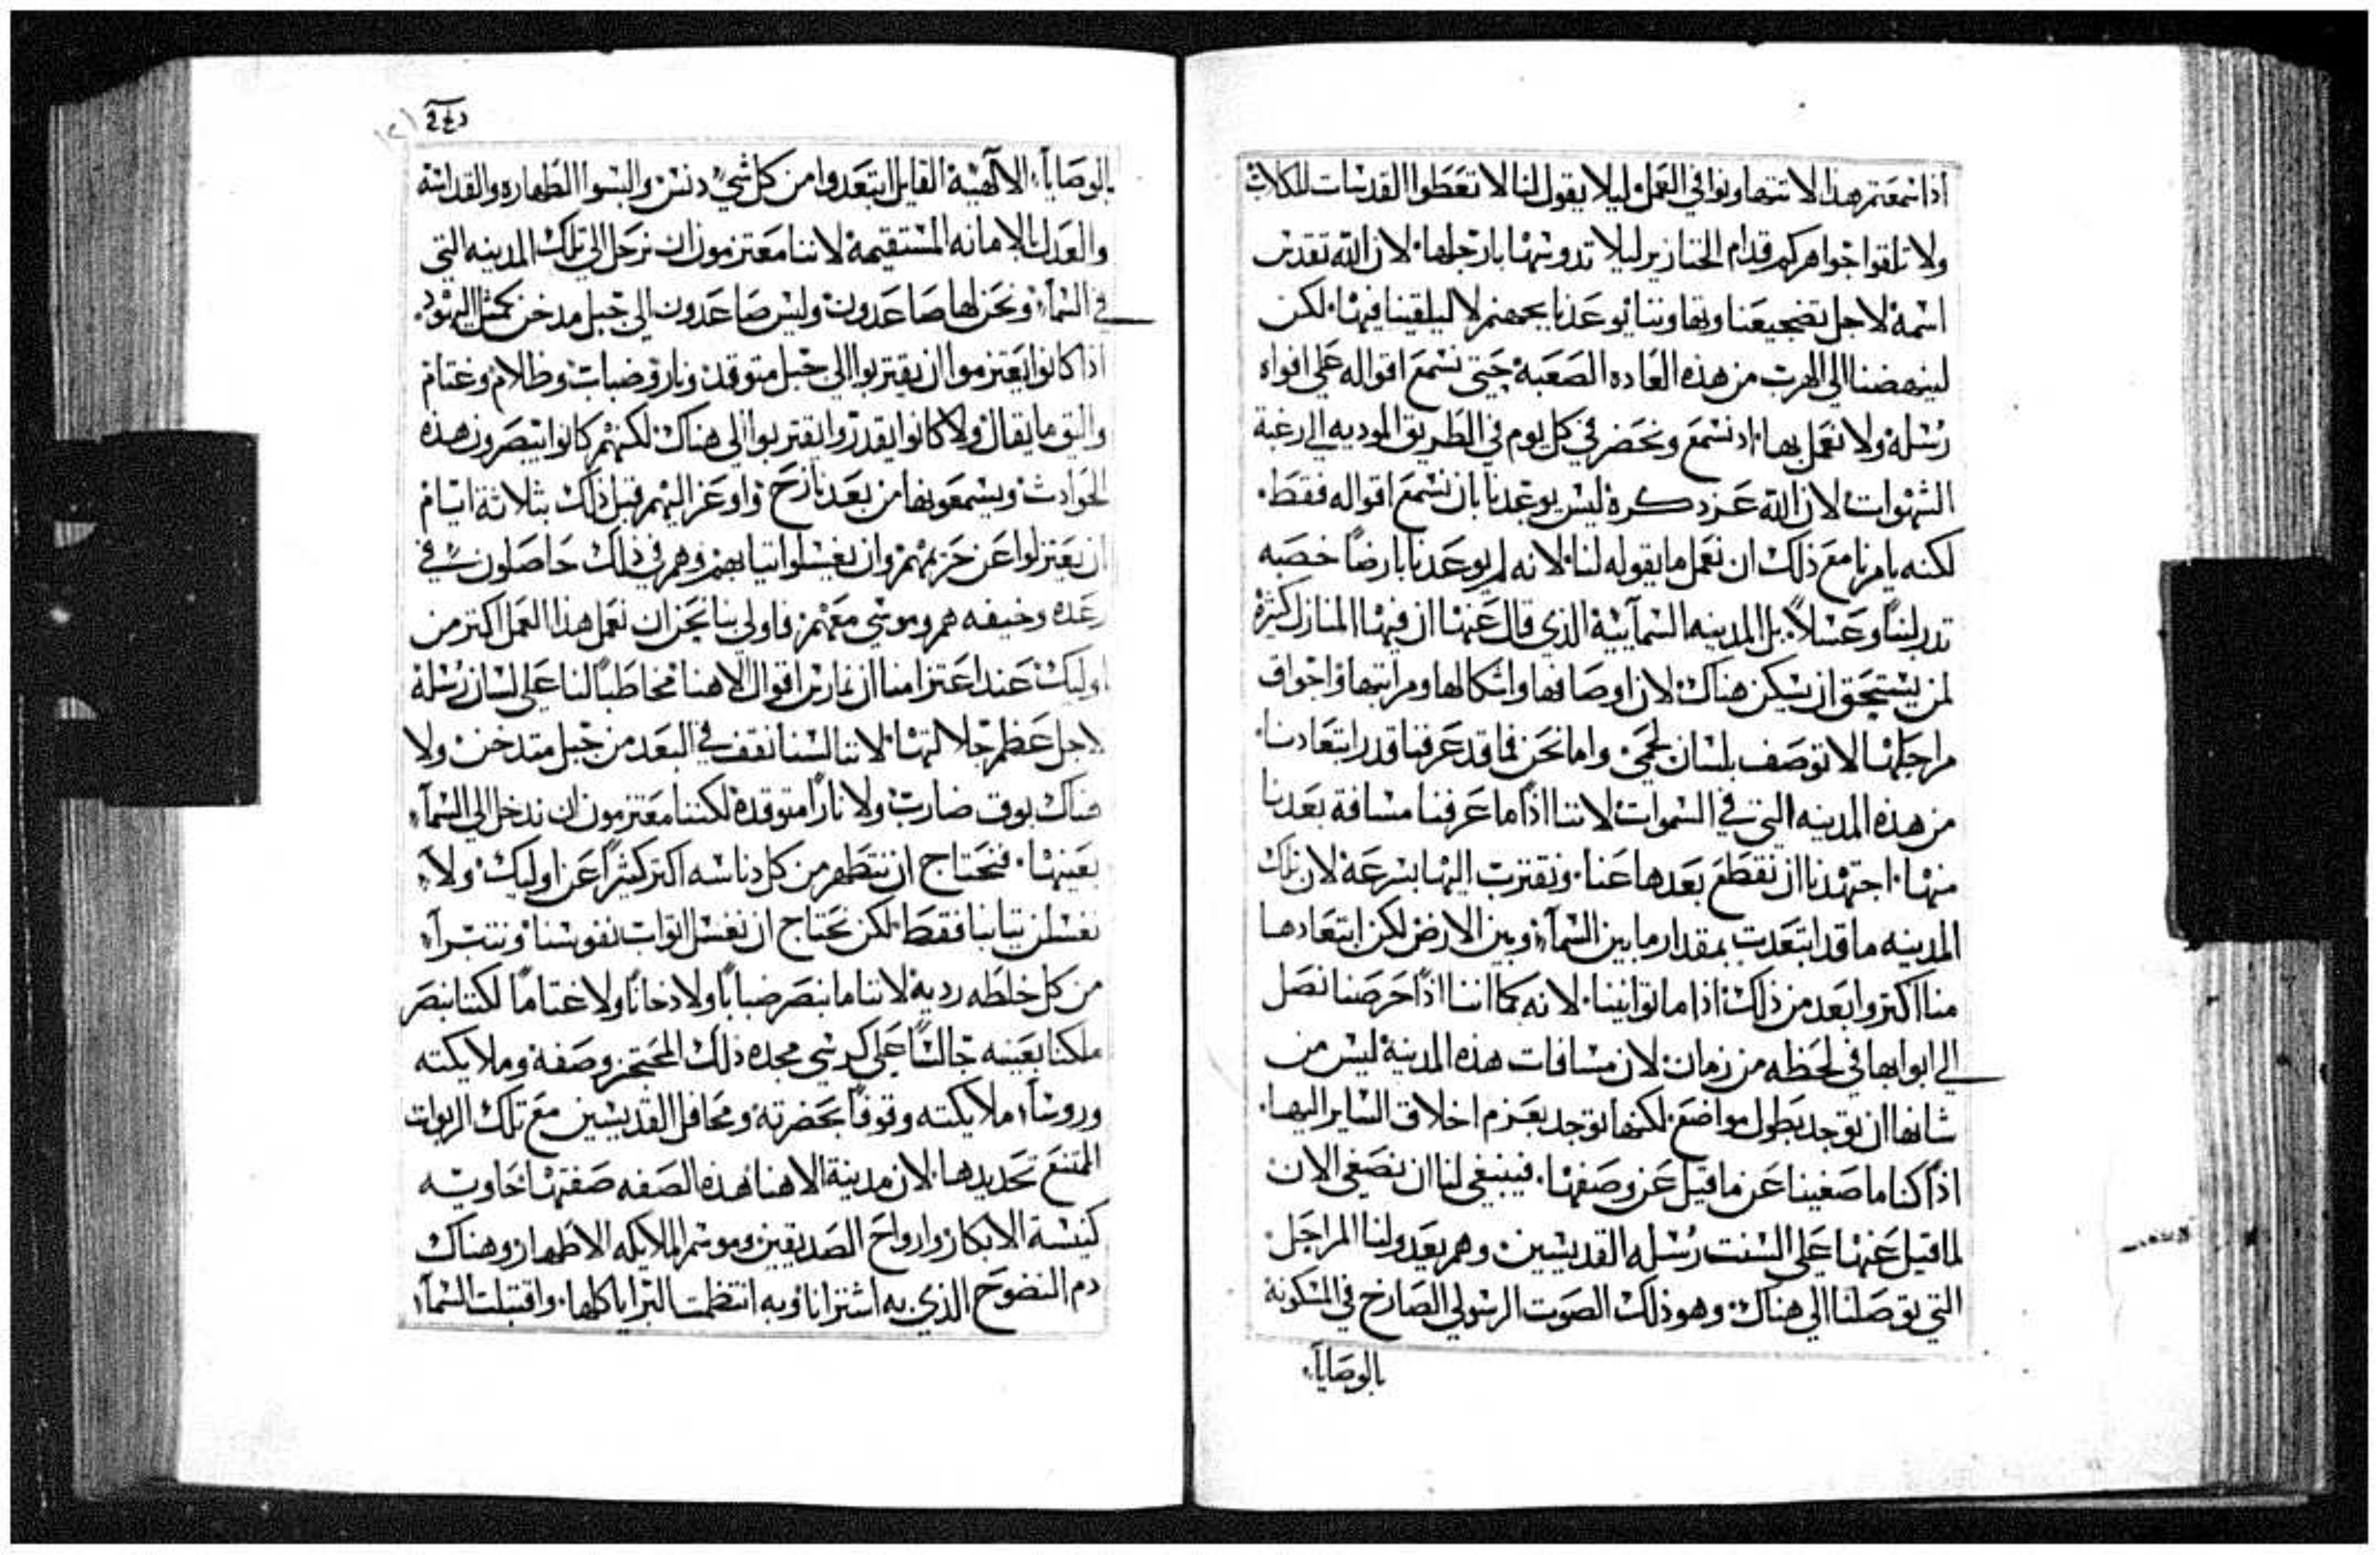 اذا سمعتم هذا لا تتهاونوا في العمل ليلا يقول لنا لا تعطوا القدسات للكلاب
ولا تلقوا جواهركم قدام الخنازير ليلا تدوسها بارجلها لان الله تقدس
اسمه لاجل تضجيعنا وتهاوننا يوعدنا بجهنم لا ليلقينا فيها لكن
لينهضنا الي الهرب من هذه العاده الصعبه حتي نسمع اقواله علي افواه
رسله ولا نعمل بها اد نسمع ونحضر في كل يوم في الطريق الموديه الي رغبة
الشهوات لان الله عز دكره ليس يوعدنا بان نسمع اقواله فقط
لكنه يامرنا مع ذلك ان نعمل ما يقوله لنا لانه لم يوعدنا بارضا خصبه
تدر لبنا وعسلا بل المدينه السمآييه الذي قال عنها ان فيها المنازل كثيره
لمن يستحق ان يسكن هناك لان اوصافها واشكالها ومراتبها واجواق
مراحلها لا توصف بلسان لحمي واما نحن فما قد عرفنا قدر ابتعادنا
من هذه المدينه التي في السموات لاننا اذا ما عرفنا مسافة بعدنا
منها اجتهدنا ان نقطع بعدها عنا ونقترب اليها بسرعة لان تلك
المدينه ما قد ابتعدت بمقدار ما بين السمآء وبين الارض لكن ابتعادها
منا اكتر وابعد من ذلك اذا ما توانينا لانه كما اننا اذا حرصنا نصل
الي ابوابها في لحظه من زمان لان مسافات هذه المدينة ليس من
شانها ان توجد بطول مواضع لكنها توجد بعزم اخلاق الساير اليها
اذا كنا ما صغينا عن ما قيل عن وصفها فينبغي لنا ان نصغي الان
لما قيل عنها علي السنت رسله القديسين وهم يعدو لنا المراحل
التي توصلنا الي هناك وهو ذلك الصوت الرسولي الصارخ في المسكونة
بالوصايآء
بالوصايآء الالهية القايل ابتعدوا من كل شي دنس والبسوا الطهاره والقداسة
والعدل بالامانه المستقيمة لاننا معتزمون ان نرحل الي تلك المدينه التي
في السمآء ونحن لها صاعدون وليس صاعدون الي جبل مدخن كمثل اليهود
اذ كانوا يعتزموا ان يقتربوا الي جبل متوقد ونار وضباب وظلام وغتام
والبق ما يقال ولا كانوا يقدروا يقتربوا الي هناك لكنهم كانوا يبصرون هذه
الحوادث ويسمعونها من بعد نازح واوعز اليهم قبل ذلك بثلاثة ايام
ان يعتزلوا عن حزيمهم وان يغسلوا تيابهم وهم في ذلك حاصلون في
رعده وخيفه هم وموسي معهم فاولي بنا نحن ان نعمل هذا العمل اكتر من
اوليك عند اعتزامنا ان نمارس اقوال الاهنا مخاطبا لنا علي لسان رسله
لاجل عظم جلالتها لاننا لسنا نقف في البعد من جبل متدخن ولا
هناك بوق ضارب ولا نارا متوقدة لكننا معتزمون ان ندخل الي السمآء
بعينها فنحتاج ان نتطهر من كل دناسه اكتر كثيرا عن اوليك ولآ
نغسلن تيابنا فقط لكن نحتاج ان نغسل اتواب نفوسنا ونتبرآء
من كل خلطه رديه لاننا ما نبصر ضبابا ولا دخانا ولا غتاما لكننا نبصر
ملكنا بعينه جالسا علي كرسي مجده ذلك المحتجز وصفه وملايكته
وروسآء ملايكته وقوفا بحضرته ومحافل القديسين مع تلك الربوات
الممتنع تحديدها لان مدينة الاهنا هده الصفه صفتها حاويه
كنيسة الابكار وارواح الصديقين وموسم الملايكه الاطهار وهناك
دم النضوح الذي به اشترانا وبه انتظمت البرايا كلها واقتبلت السمآء